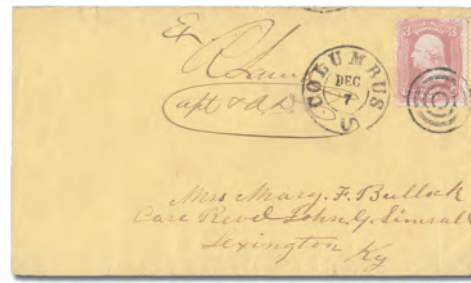 Ex
Capt & A.D.
COLUMBUS
DEC
7
3 3
Mrs Mary. F. Bullock
Care Revd John. G. Simrall
Lexington Ky